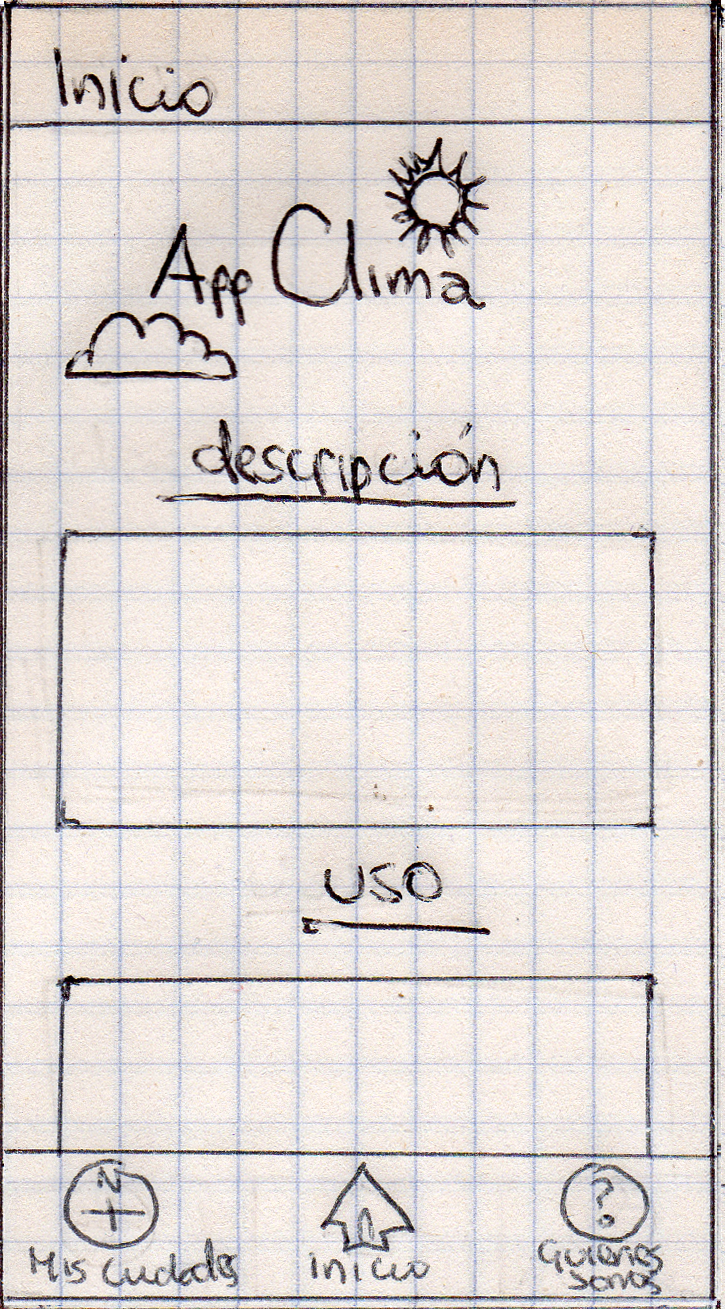 Inicio
App Clima
descripción
uso
N
Mis ciudades
inicio
?
Quienes
somos